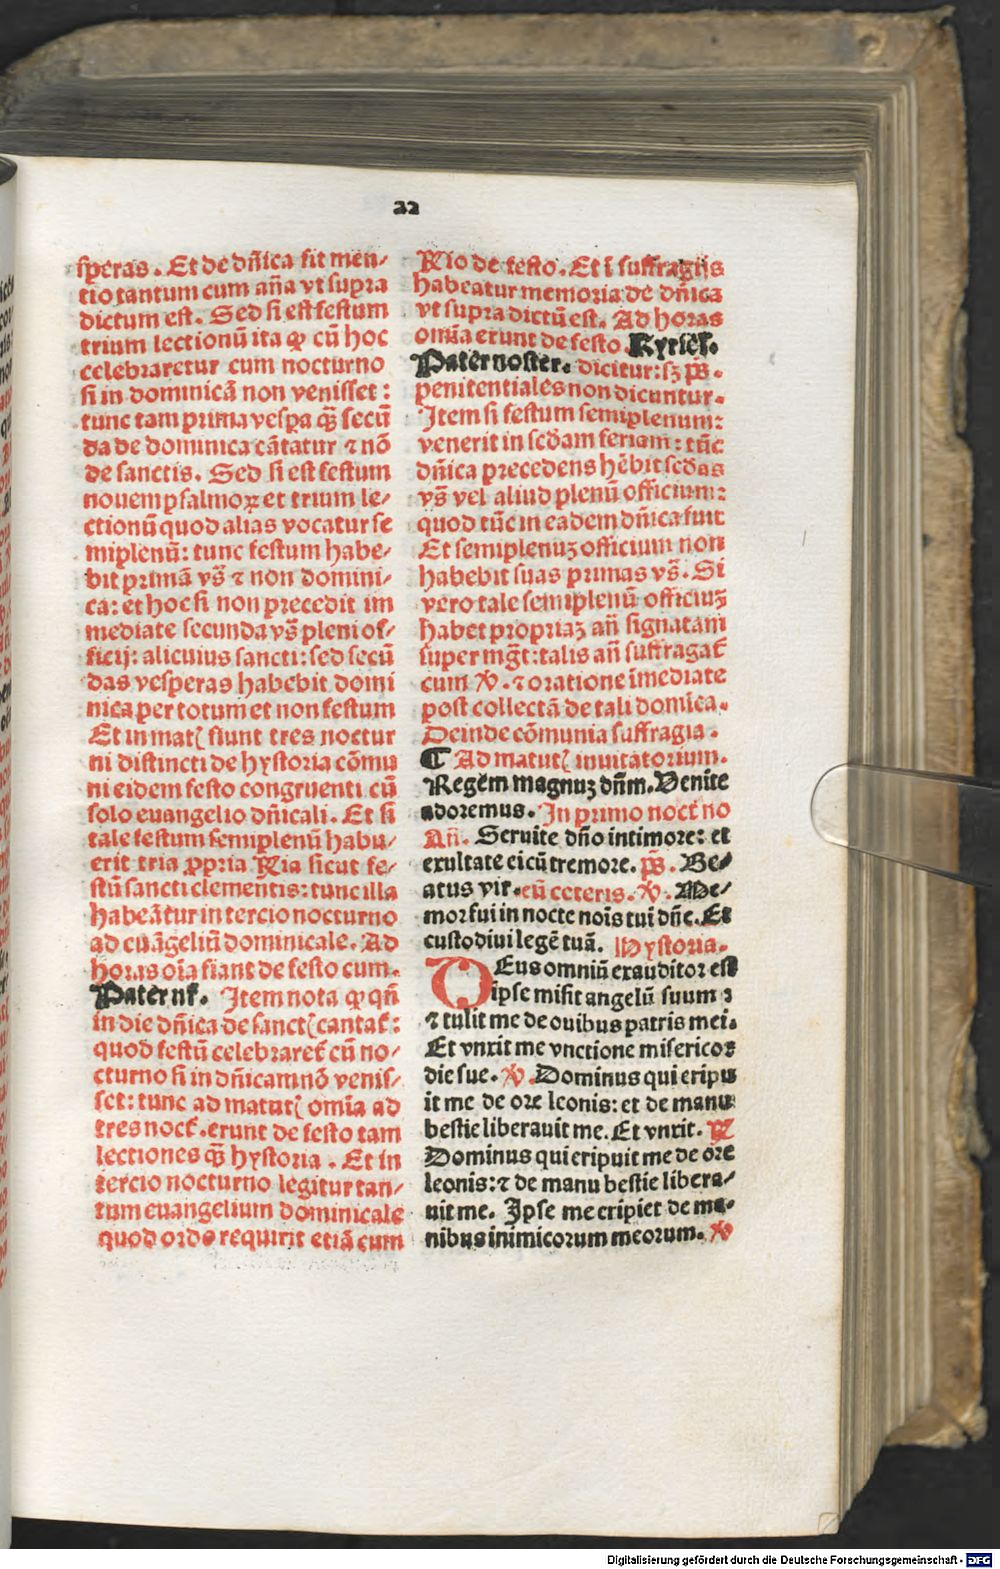 22
speras. Et de dñica fit men⸗
tio tantum cum aña vt supra
dictum est. Sed si est festum
trium lectionũ ita ꝙ cũ hoc
celebraretur cum nocturno
si in dominicã non venisset:
tunc tam prima vespa q̃ secũ
da de dominica cãtatur ⁊ nõ
de sanctis. Sed si est festum
nouem psalmoꝝ et trium le⸗
ctionũ quod alias vocatur se
miplenũ: tunc festum habe⸗
bit primã vs̃ ⁊ non domini⸗
ca: et hoc si non precedit im
mediate secunda vs̃ pleni of⸗
ficij: alicuius sancti: sed secũ
das vesperas habebit domi
nica per totum et non festum
Et in matĩ fiunt tres noctur
ni distincti de hystoria cõmu
ni eidem festo congruenti cũ
solo euangelio dñicali. Et si
tale festum semiplenũ habu⸗
erit tria ꝓpria Ria sicut fe⸗
stũ sancti clementis: tunc illa
habeãtur in tercio nocturno
ad euãgeliũ dominicale. Ad
horas oĩa fiant de festo cum.
Pater nr̃. Item nota ꝙ qñ
in die dñica de sanctĩ cantat̃:
quod festũ celebraret̃ cũ no⸗
cturno si in dñicam nõ venis⸗
set: tunc ad matutĩ omĩa ad
tres noct̃. erunt de festo tam
lectiones q̃ hystoria. Et in
tercio nocturno legitur tan⸗
tum euangelium dominicale
quod ordo requirit etiã cum
Rio de festo. Et ĩ suffragijs
habeatur memoria de dñica
vt supra dictũ est. Ad horas
omĩa erunt de festo. Kyriel̃.
Pater noster. dicitur: sꝫ ps̃.
penitentiales non dicuntur.
Item si festum semiplenum:
venerit in scd̃am feriam: tũc
dñica precedens hẽbit scd̃as
vs̃ vel aliud plenũ officium:
quod tũc in eadem dñica fuit
Et semiplenuꝫ officium non
habebit suas primas vs̃. Si
vero tale semiplenũ officiuꝫ
habet propriaꝫ añ signatam
super mg̃t: talis añ suffragat̃
cum ℣. ⁊ oratione ĩmediate
post collectã de tali domĩca.
Deinde cõmunia suffragia.
¶ Ad matutĩ inuitatorium.
Regem magnuꝫ dñm. Venite
adoremus. In primo noct̃no
Añ. Seruite dño in timore: et
exultate ei cũ tremore. ps̃. Be⸗
atus vir. cũ ceteris. ℣. Me⸗
mor fui in nocte noĩs tui dñe. Et
custodiui legẽ tuã. Hystoria.
DEus omniũ exauditor est
ipse misit angelũ suum:
⁊ tulit me de ouibus patris mei.
Et vnxit me vnctione misericor
die sue. ℣. Dominus qui eripu
it me de ore leonis: et de manu
bestie liberauit me. Et vnxit. ℟
Dominus qui eripuit me de ore
leonis: ⁊ de manu bestie libera⸗
uit me. Ipse me eripiet de ma⸗
nibus inimicorum meorum. ℣
Digitalisierung gefördert durch die Deutsche Forschungsgemeinschaft - DFG